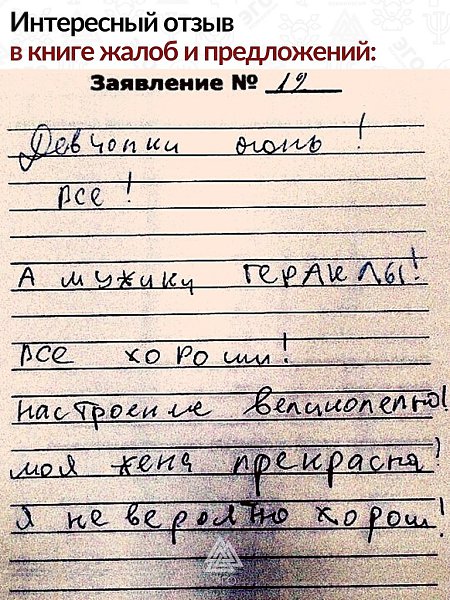 Интересный отзыв
в книге жалоб и предложений:
Заявление № 12
Девчонки огонь!
все!
А мужики ГЕРАКЛЫ!
все хороши!
настроение великолепно!
моя жена прекрасна!
я не вероятно хорош!